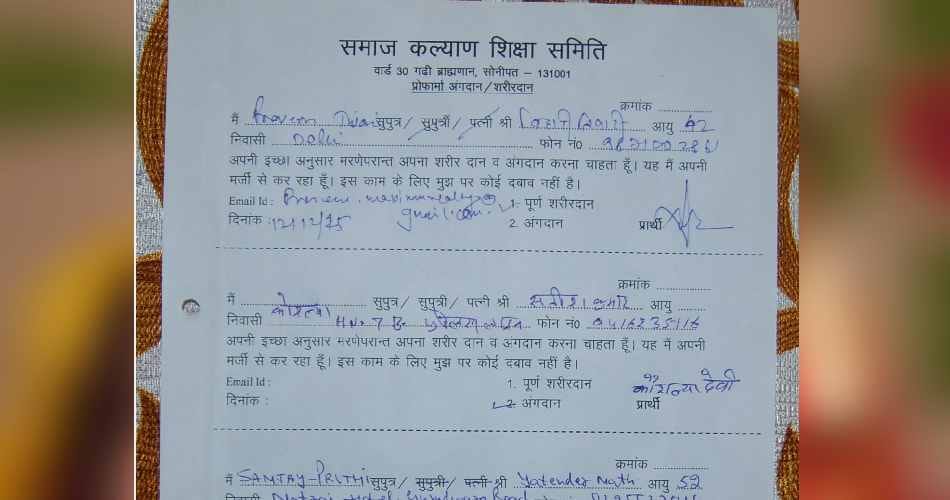 समाज कल्याण शिक्षा समिति
वार्ड 30 गढी ब्राह्मणान, सोनीपत – 131001
प्रोफार्मा अंगदान/शरीरदान
क्रमांक
मैं सुपुत्र/ सुपुत्री/ पत्नी श्री आयु 42
निवासी Delhi फोन नं०
अपनी इच्छा अनुसार मरणेपरान्त अपना शरीर दान व अंगदान करना चाहता हूँ। यह मैं अपनी
मर्जी से कर रहा हूँ। इस काम के लिए मुझ पर कोई दबाव नहीं है।
Email Id : 1. पूर्ण शरीरदान
gmail.com
दिनांक : 12/12/25 2. अंगदान प्रार्थी
क्रमांक
मैं सुपुत्र/ सुपुत्री/ पत्नी श्री आयु
निवासी फोन नं०
अपनी इच्छा अनुसार मरणेपरान्त अपना शरीर दान व अंगदान करना चाहता हूँ। यह मैं अपनी
मर्जी से कर रहा हूँ। इस काम के लिए मुझ पर कोई दबाव नहीं है।
Email Id : 1. पूर्ण शरीरदान
देवी
दिनांक : 2 अंगदान प्रार्थी
क्रमांक
मैं SANJAY PRITHI सुपुत्र/ सुपुत्री/ पत्नी श्री Yatender Nath आयु 52
निवासी